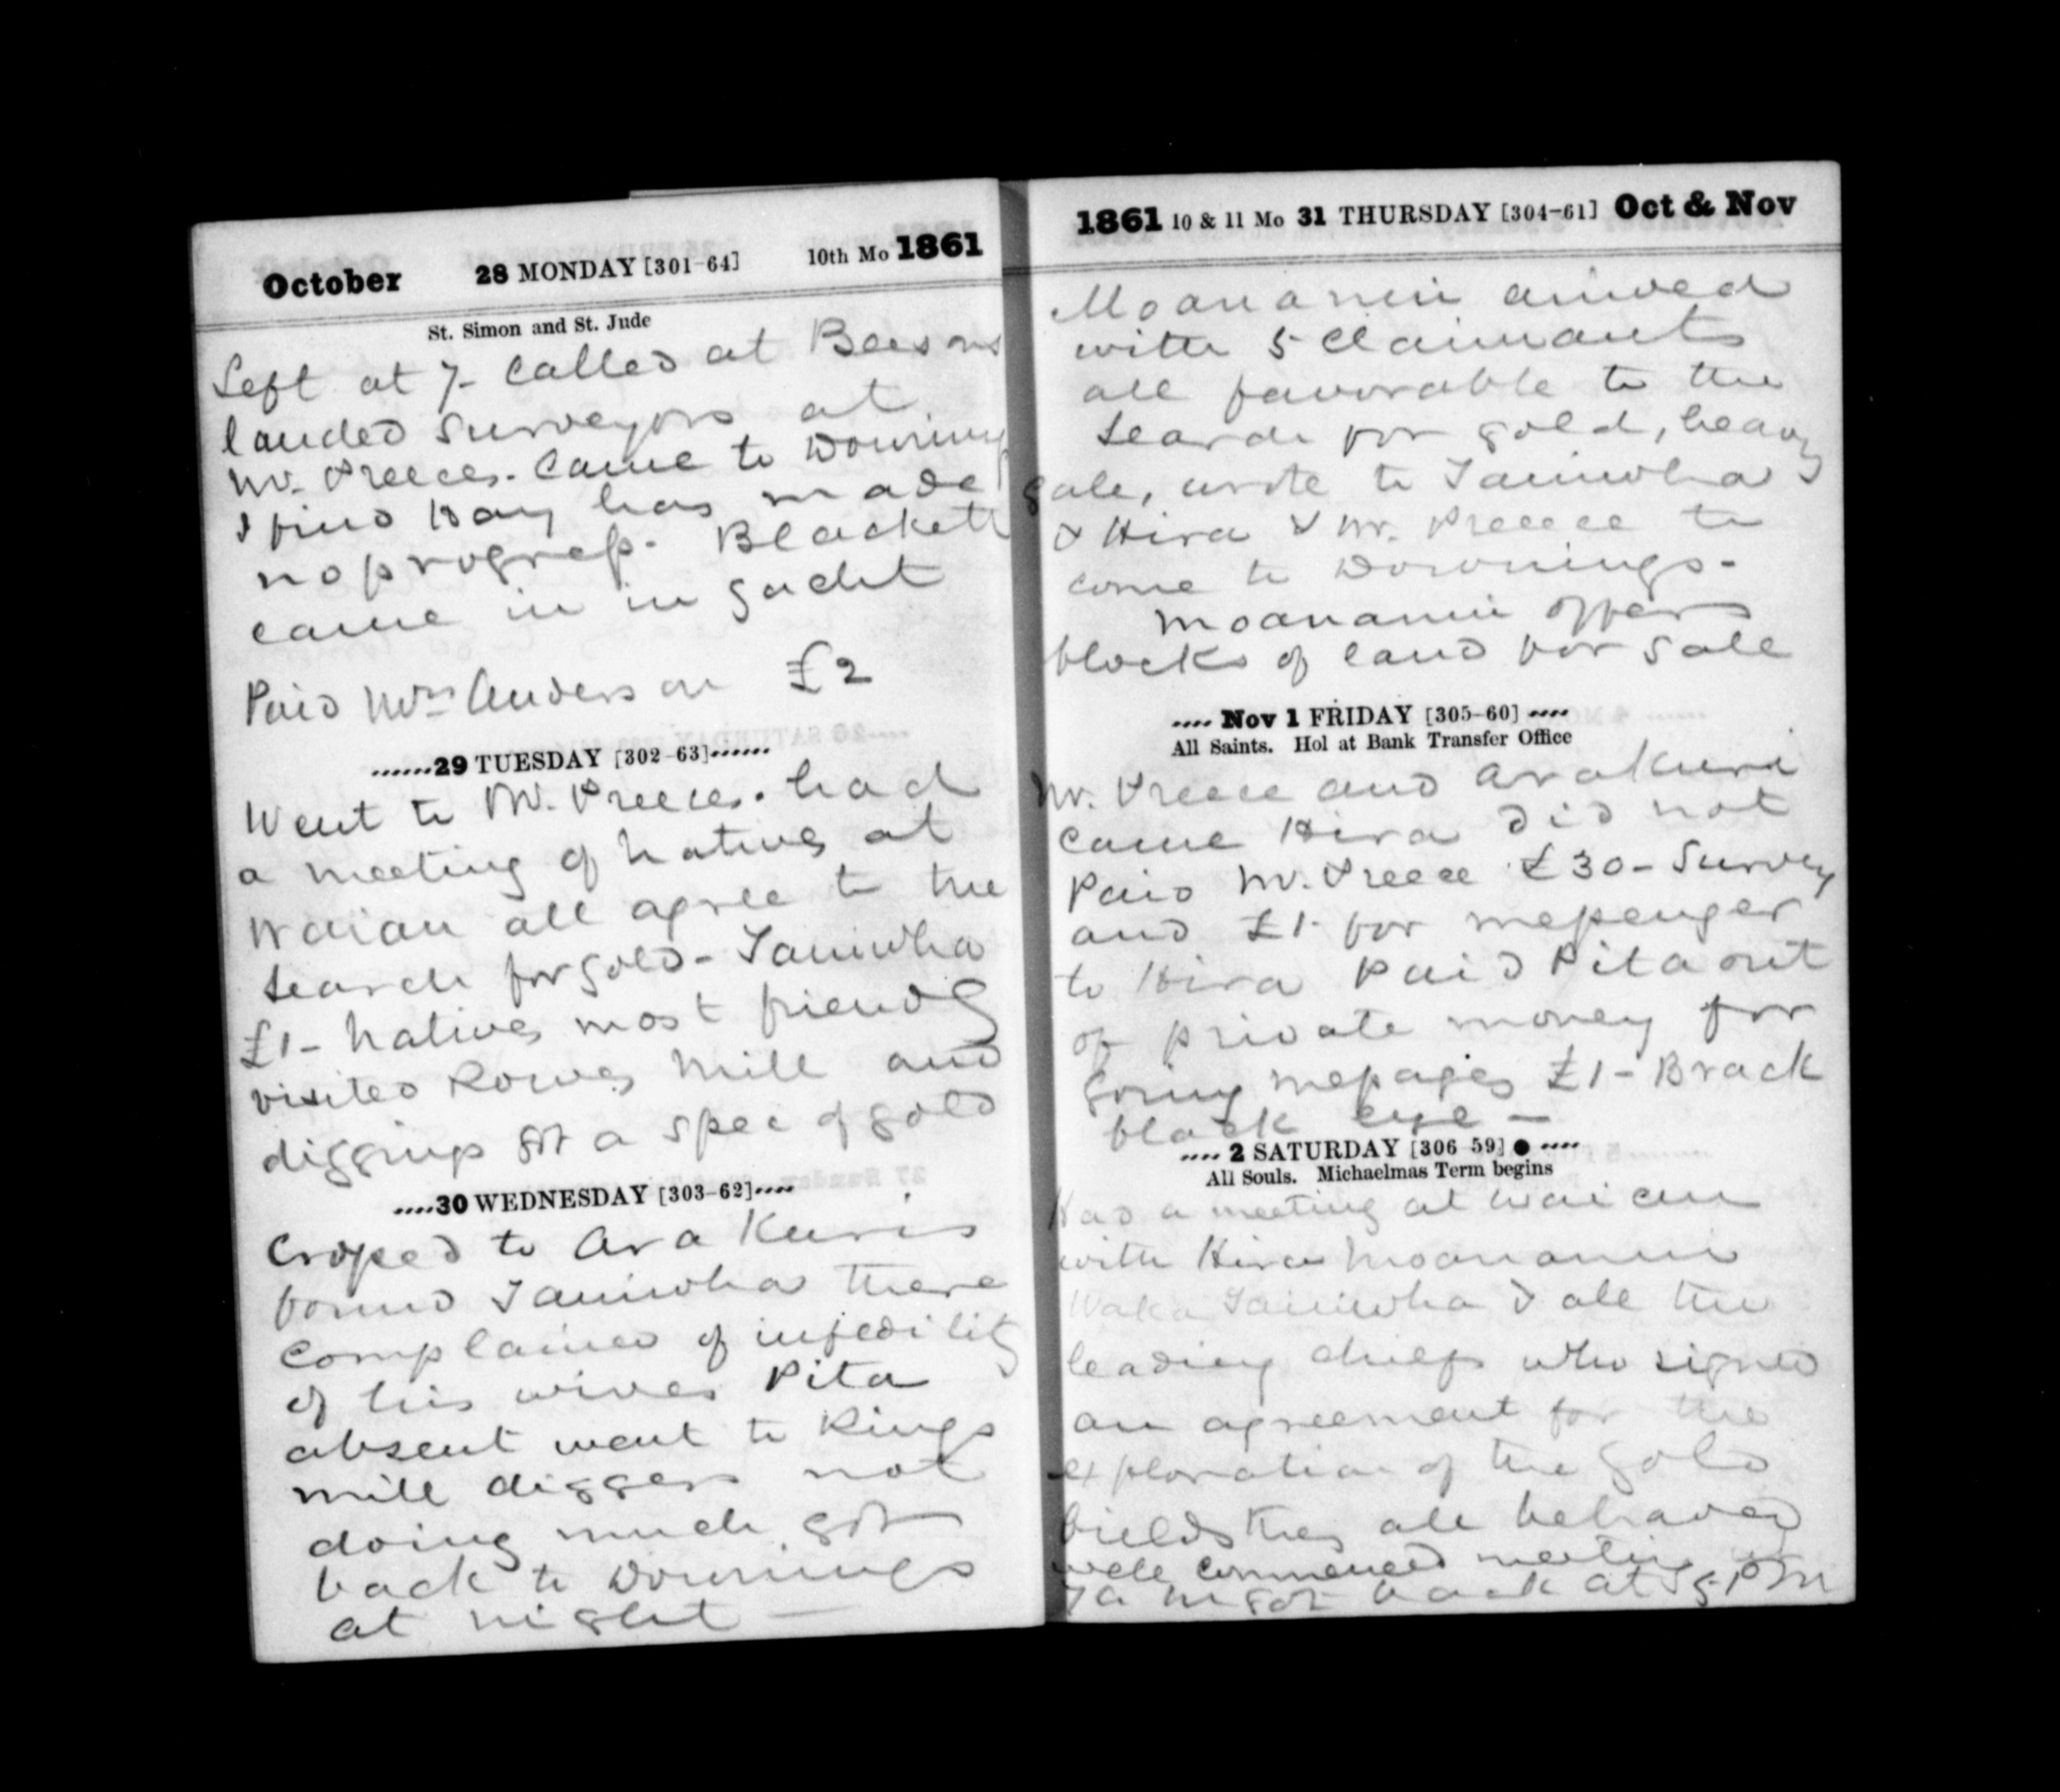 October 28 MONDAY [301-64] 10th Mo 1861
St. Simon and St. Jude
Left at 7- Called at Beesons
landed surveyors at
Mr. Preeces. Came to Downings
& find Bay has made
no progress. Blackett
came in in yacht
Paid Mrs Anderson £2
29 TUESDAY [302-63]
Went to Mr. Preeces. had
a meeting of natives at
Waiau all agree to the
search for gold - Taniwha
£1 - natives most friendly
visited Rowes Mill and
diggings got a spec of gold
30 WEDNESDAY [303-62]
Crossed to Ara Kuris
found Taniwha there
complained of infedility
of his wives Pita
absent went to Kings
mill diggers not
doing much got
back to Downings
at night —
1861 10 & 11 Mo 31 THURSDAY [304-61] Oct & Nov
Moananui arrived
with 5 claimants
all favorable to the
search for gold, heavy
gale, wrote to Taniwha
& Hira & Mr. Preece to
come to Downings-
Moananui offers
blocks of land for sale
Nov 1 FRIDAY [305-60]
All Saints. Hol at Bank Transfer Office
Mr. Preece and Arakuri
came Hira did not
Paid Mr. Preece £30 - Survey
and £1- for messenger
to Hira Paid Pita out
of private money for
going messages £1 - Brack
black eye —
2 SATURDAY [306-59] ●
All Souls. Michaelmas Term begins
Had a meeting at Waiau
with Hira Moananui
Waka Taniwha & all the
leading chiefs who signed
an agreement for the
exploration of the gold
fields they all behaved
well commenced meeting
7 a m got back at 5 P M